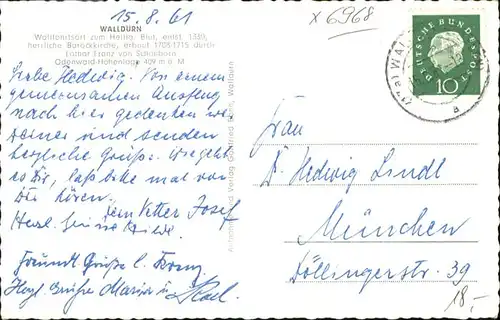 15.8.61
WALLDÜRN
Wallfahrtsort zum Heilig. Blut, entst. 1330,
herrliche Barockkirche, erbaut 1705-1715 durch
Lothar Franz von Schönborn
Odenwald-Höhenlage 409 m ü. M
Liebe Hedwig. Von einem
gemeinsamen Ausflug
nach hier gedenken wir
Deiner und senden
herzliche Grüße. Wie geht
es Dir, laß bitte mal von
Dir hören.
Dein Vetter Josef
Herzl. Grüße
Freundl. Grüße
Hzgl. Grüße Maria u.
Verlag Gottfried
Walldürn
x 6968
DEUTSCHE BUNDESPOST
10
a
Frau
Dr. Hedwig Lindl
München
Döllingerstr. 39
18,-